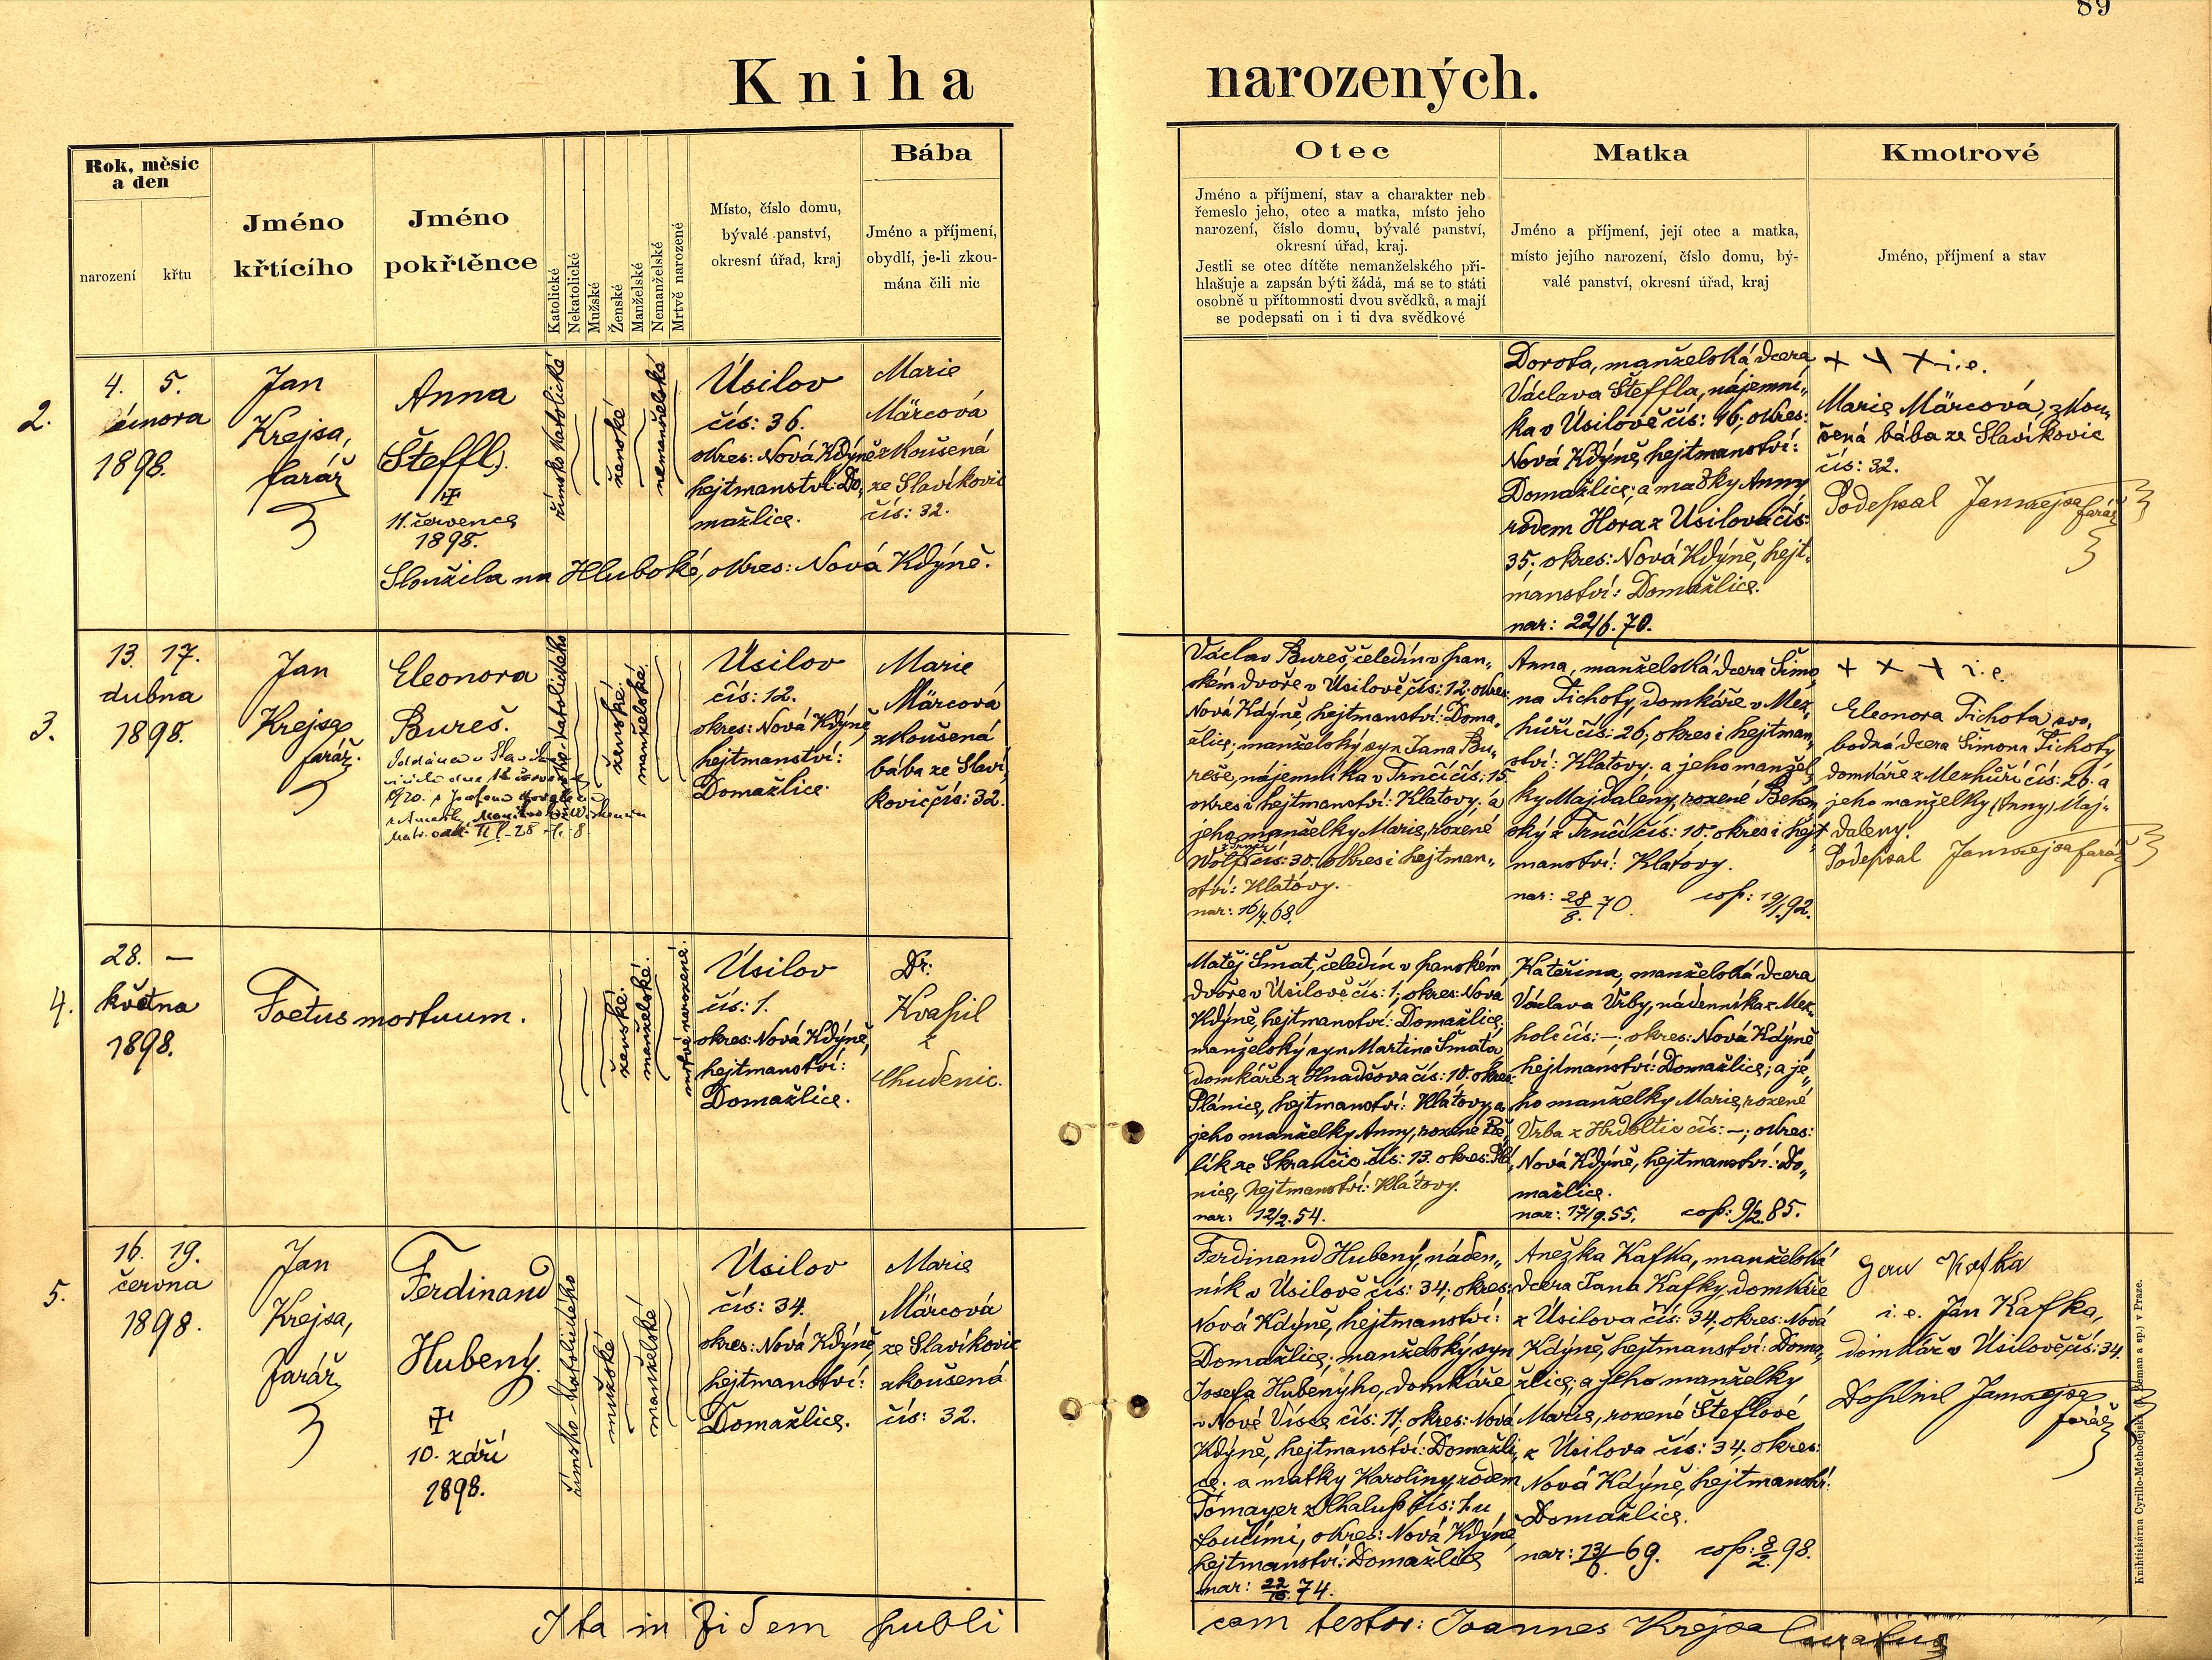 89
Kniha narozených.
Rok, měsíc
a den
narození
křtu
Jméno
křtícího
Jméno
pokřtěnce
Katolické
Nekatolické
Mužské
Ženské
Manželské
Nemanželské
Mrtvě narozené
Místo, číslo domu,
bývalé panství,
okresní úřad, kraj
Bába
Jméno a příjmení,
obydlí, je-li zkou-
mána čili nic
Otec
Jméno a příjmení, stav a charakter neb
řemeslo jeho, otec a matka, místo jeho
narození, číslo domu, bývalé panství,
okresní úřad, kraj.
Jestli se otec dítěte nemanželského při-
hlašuje a zapsán býti žádá, má se to státi
osobně u přítomnosti dvou svědků, a mají
se podepsati on i ti dva svědkové
Matka
Jméno a příjmení, její otec a matka,
místo jejího narození, číslo domu, bý-
valé panství, okresní úřad, kraj
Kmotrové
Jméno, příjmení a stav
2.
4. 5.
února
1898.
Jan
Krejsa,
farář
Anna
(Šteffl).
11. července
1898.
Sloužila na Hluboké, okres: Nová Kdýně.
římsko katolické
ženské
nemanželské
Úsilov
čís: 36.
okres: Nová Kdýně
hejtmanství: Do„
mažlice.
Marie
Märcová
zkoušená
ze Slavíkovic
čís: 32.
Dorota, manželská dcera
Václava Šteffla, nájemní„
ka v Úsilově čís: 16; okres:
Nová Kdýně, hejtmanství:
Domažlice; a matky Anny
rodem Hora z Úsilova čís:
35; okres: Nová Kdýně, hejt„
manství: Domažlice.
nar: 22/6. 70.
+ + + i.e.
Marie Märcová, zkou„
šená bába ze Slavíkovic
čís: 32.
Podepsal Jan Krejsa farář
3.
13. 17.
dubna
1898.
Jan
Krejsa
farář.
Eleonora
Bureš.
1920. s Josefem
římsko-katolického
ženské.
manželské.
Úsilov
čís: 12.
okres: Nová Kdýně,
hejtmanství:
Domažlice.
Marie
Märcová
zkoušená
bába ze Slaví„
kovic čís: 32.
Václav Bureš, čeledín v pan„
ském dvoře v Úsilově čís: 12, okres:
Nová Kdýně, hejtmanství: Doma„
žlice; manželský syn Jana Bu„
reše, nájemníka v Trnčí čís: 15.
okres i hejtmanství: Klatovy; a
jeho manželky Marie, rozené
Wolf z Trnčí čís: 30. okres i hejtman„
ství: Klatovy.
nar: 16/4. 68.
Anna, manželská dcera Šimo„
na Tichoty, domkáře v Mez„
hůří čís: 26; okres i hejtman„
ství: Klatovy. a jeho manžel„
ky Majdalény, rozené Behen
ský z Trnčí čís: 10. okres i hejt„
manství: Klatovy.
nar: 28/8. 70. cop: 19/1. 92.
+ + + i.e.
Eleonora Tichota svo„
bodná dcera Šimona Tichoty
domkáře z Mezhůří čís: 26, a
jeho manželky (Anny) Maj„
daleny.
Podepsal Jan Krejsa farář
4.
28. —
května
1898.
Foetus mortuum.
ženské.
manželské.
mrtvě narozené.
Úsilov
čís: 1.
okres: Nová Kdýně,
hejtmanství:
Domažlice.
Dr:
Kvapil
z
Chudenic.
Matěj Šmat, čeledín v panském
dvoře v Úsilově čís: 1; okres: Nová
Kdýně, hejtmanství: Domažlice;
manželský syn Martina Šmata
domkáře z Hnačova čís: 10. okres:
Plánice, hejtmanství: Klatovy, a
jeho manželky Anny, rozené
lík ze Skrančic čís: 13. okres: Plá„
nice, hejtmanství: Klatovy.
nar: 12/2. 54.
Kateřina, manželská dcera
Václava Vrby, nádenníka z Mez„
holc čís: —; okres: Nová Kdýně
hejtmanství: Domažlice; a je„
ho manželky Marie, rozené
Vrba z Hrdoltic čís: —; okres:
Nová Kdýně, hejtmanství: Do„
mažlice.
nar: 17/9. 55. cop: 9/2. 85.
5.
16. 19.
června
1898.
Jan
Krejsa,
farář
Ferdinand
Hubený.
10. září
1898.
římsko katolického
mužské
manželské
Úsilov
čís: 34.
okres: Nová Kdýně,
hejtmanství:
Domažlice.
Marie
Märcová
ze Slavíkovic
zkoušená
čís: 32.
Ferdinand Hubený, náden„
ník v Úsilově čís: 34; okres:
Nová Kdýně, hejtmanství:
Domažlice; manželský syn
Josefa Hubenýho, domkáře
v Nové Vísce čís: 11, okres: Nová
Kdýně, hejtmanství: Domažli„
ce; a matky Karoliny, rodem
Tomayer z Chalup čís: 1. u
Loučimi, okres: Nová Kdýně,
hejtmanství: Domažlice
nar: 22/10. 74.
Anežka Kafka, manželská
dcera Jana Kafky, domkáře
z Úsilova čís: 34, okres: Nová
Kdýně, hejtmanství: Doma„
žlice, a jeho manželky
Marie, rozené Šteflové
z Úsilova čís: 34. okres:
Nová Kdýně, hejtmanství:
Domažlice.
nar: 13/6. 69. cop: 8/2. 98.
Jan Kafka
i.e. Jan Kafka,
domkář v Úsilově čís: 34.
Jan Krejsa
farář
Ita in fidem publi
cam testor: Joannes Krejsa Curatus
Knihtiskárna Cyrillo-Methodějská v Praze.